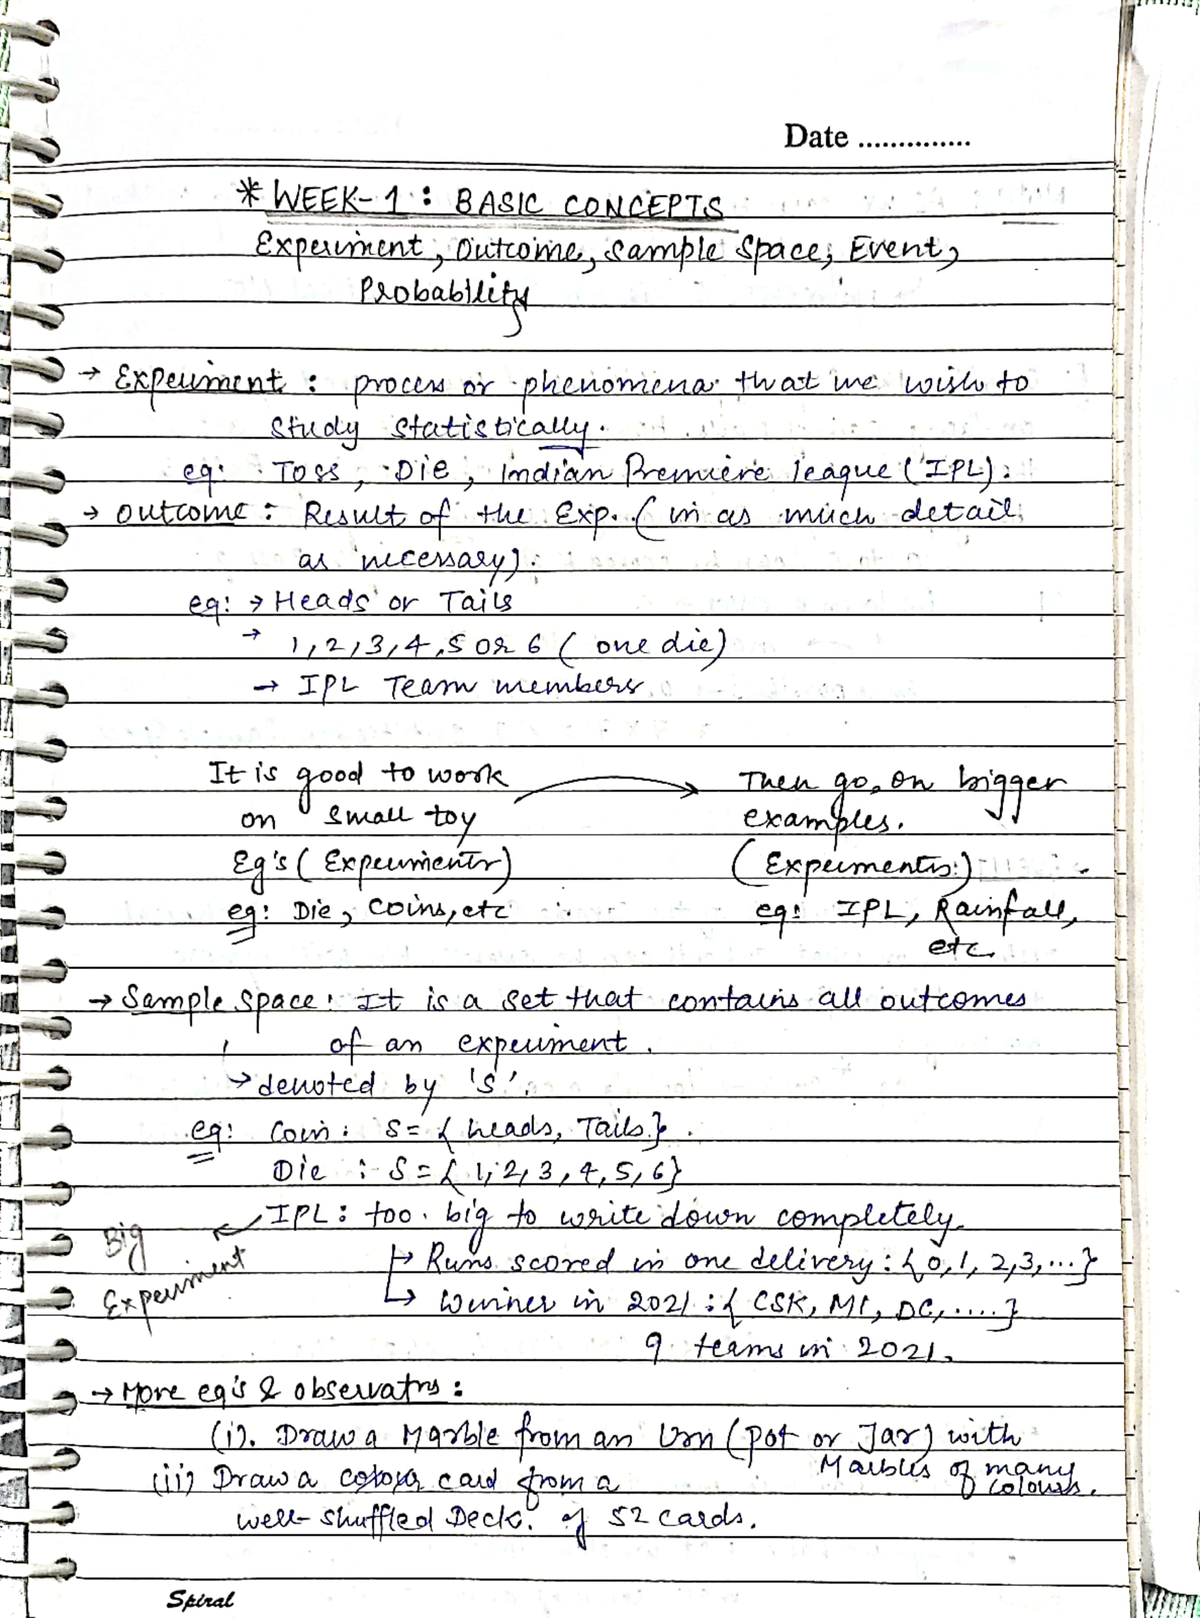 Date ..............
* WEEK-1 : BASIC CONCEPTS
Experiment, Outcome, Sample Space, Event,
Probability
→ Experiment : process or phenomena that we wish to
study statistically.
eg: Toss, Die, Indian Premiere league (IPL).
→ Outcome : Result of the Exp. (in as much detail
as necessary).
eg: → Heads or Tails
→ 1,2,3,4,5 or 6 (one die)
→ IPL Team members
It is good to work
on small toy
Eg's (Experiments)
eg: Die, Coins, etc
Then go, on bigger
examples.
(Experiments)
eg: IPL, Rainfall,
etc.
→ Sample Space : It is a set that contains all outcomes
of an experiment.
→ denoted by 's'.
eg: Coin : S = { heads, Tails }.
Die : S = { 1, 2, 3, 4, 5, 6}
IPL : too big to write down completely.
Big
Experiment
→ Runs scored in one delivery : {0, 1, 2, 3, ...}
→ Winner in 2021 : { CSK, MI, DC, .....}
9 teams in 2021.
→ More eg's & observatns :
(i). Draw a Marble from an Urn (pot or Jar) with
Marbles of many
colours.
(ii) Draw a card from a
well-shuffled Deck. of 52 cards.
Spiral